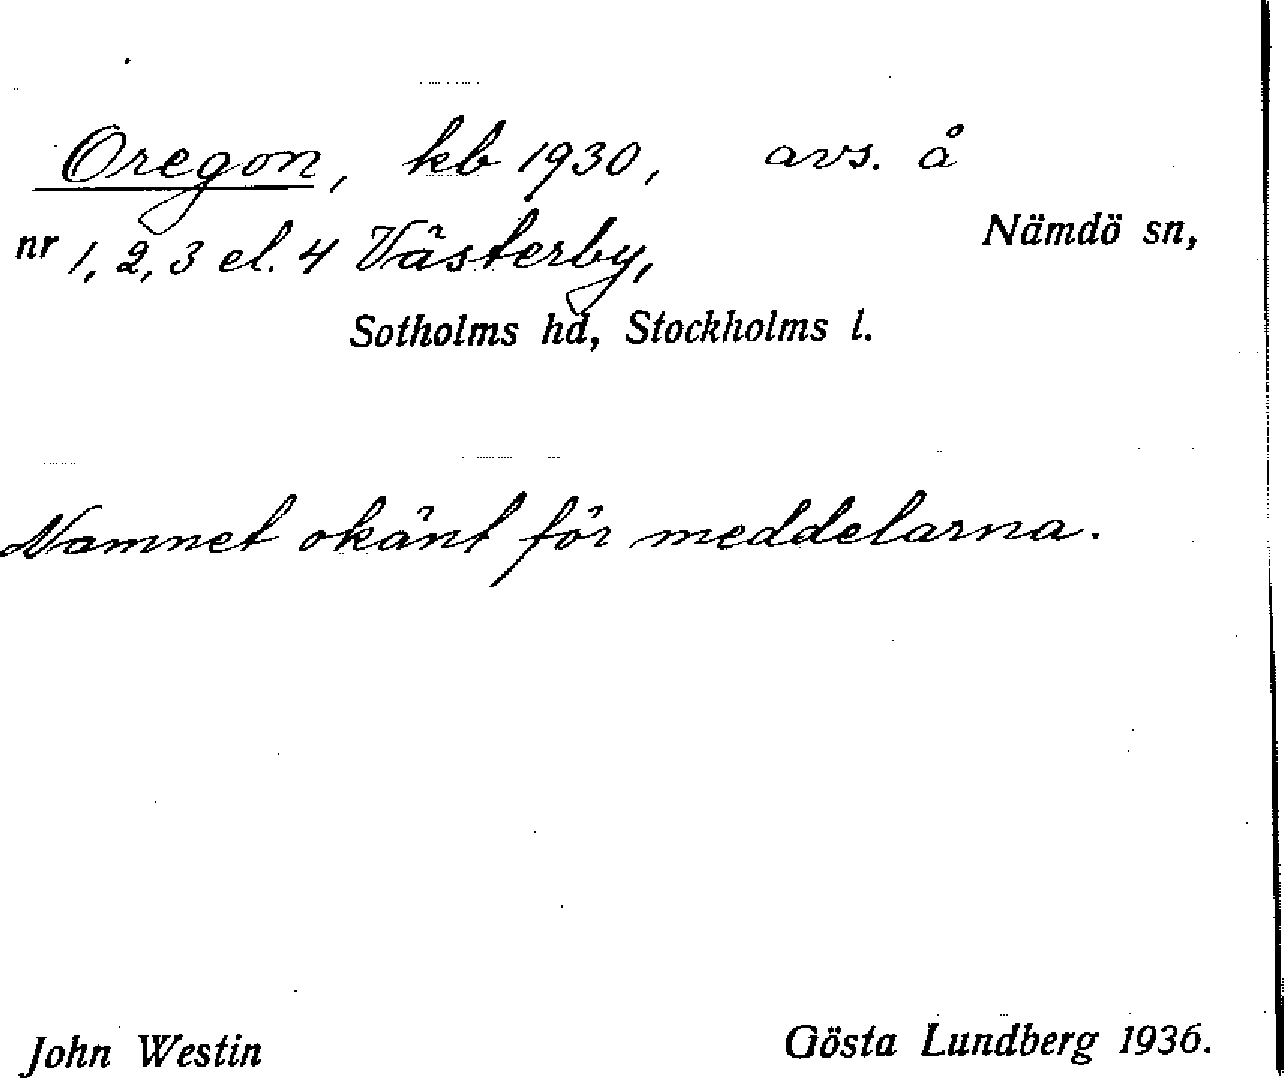 Oregon, kb 1930, avs. å
nr 1, 2, 3 el. 4 Västerby, Nämdö sn,
Sotholms hd, Stockholms l.
Namnet okänt för meddelarna.
John Westin Gösta Lundberg 1936.